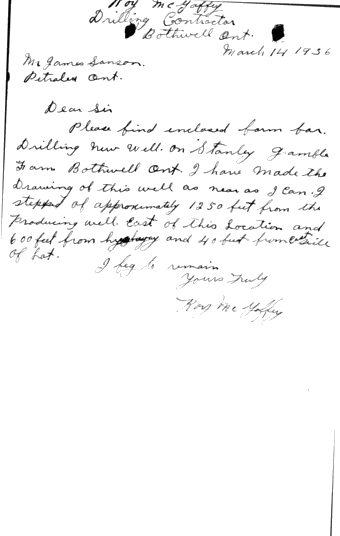 Roy McGaffey
Drilling Contractor
Bothwell Ont.
March 14 1936
Mr James Sanson.
Petrolea Ont.
Dear Sir
Please find enclosed form for.
Drilling New Well. On Stanley Gamble
Farm Bothwell Ont. I have Made the
Drawing of this well as near as I can. I
stepped of approximately 1250 feet from the
Producing well. East of this Location and
600 feet from and 40 feet from East side
Of lot.
I beg to remain
Yours Truly
Roy McGaffey